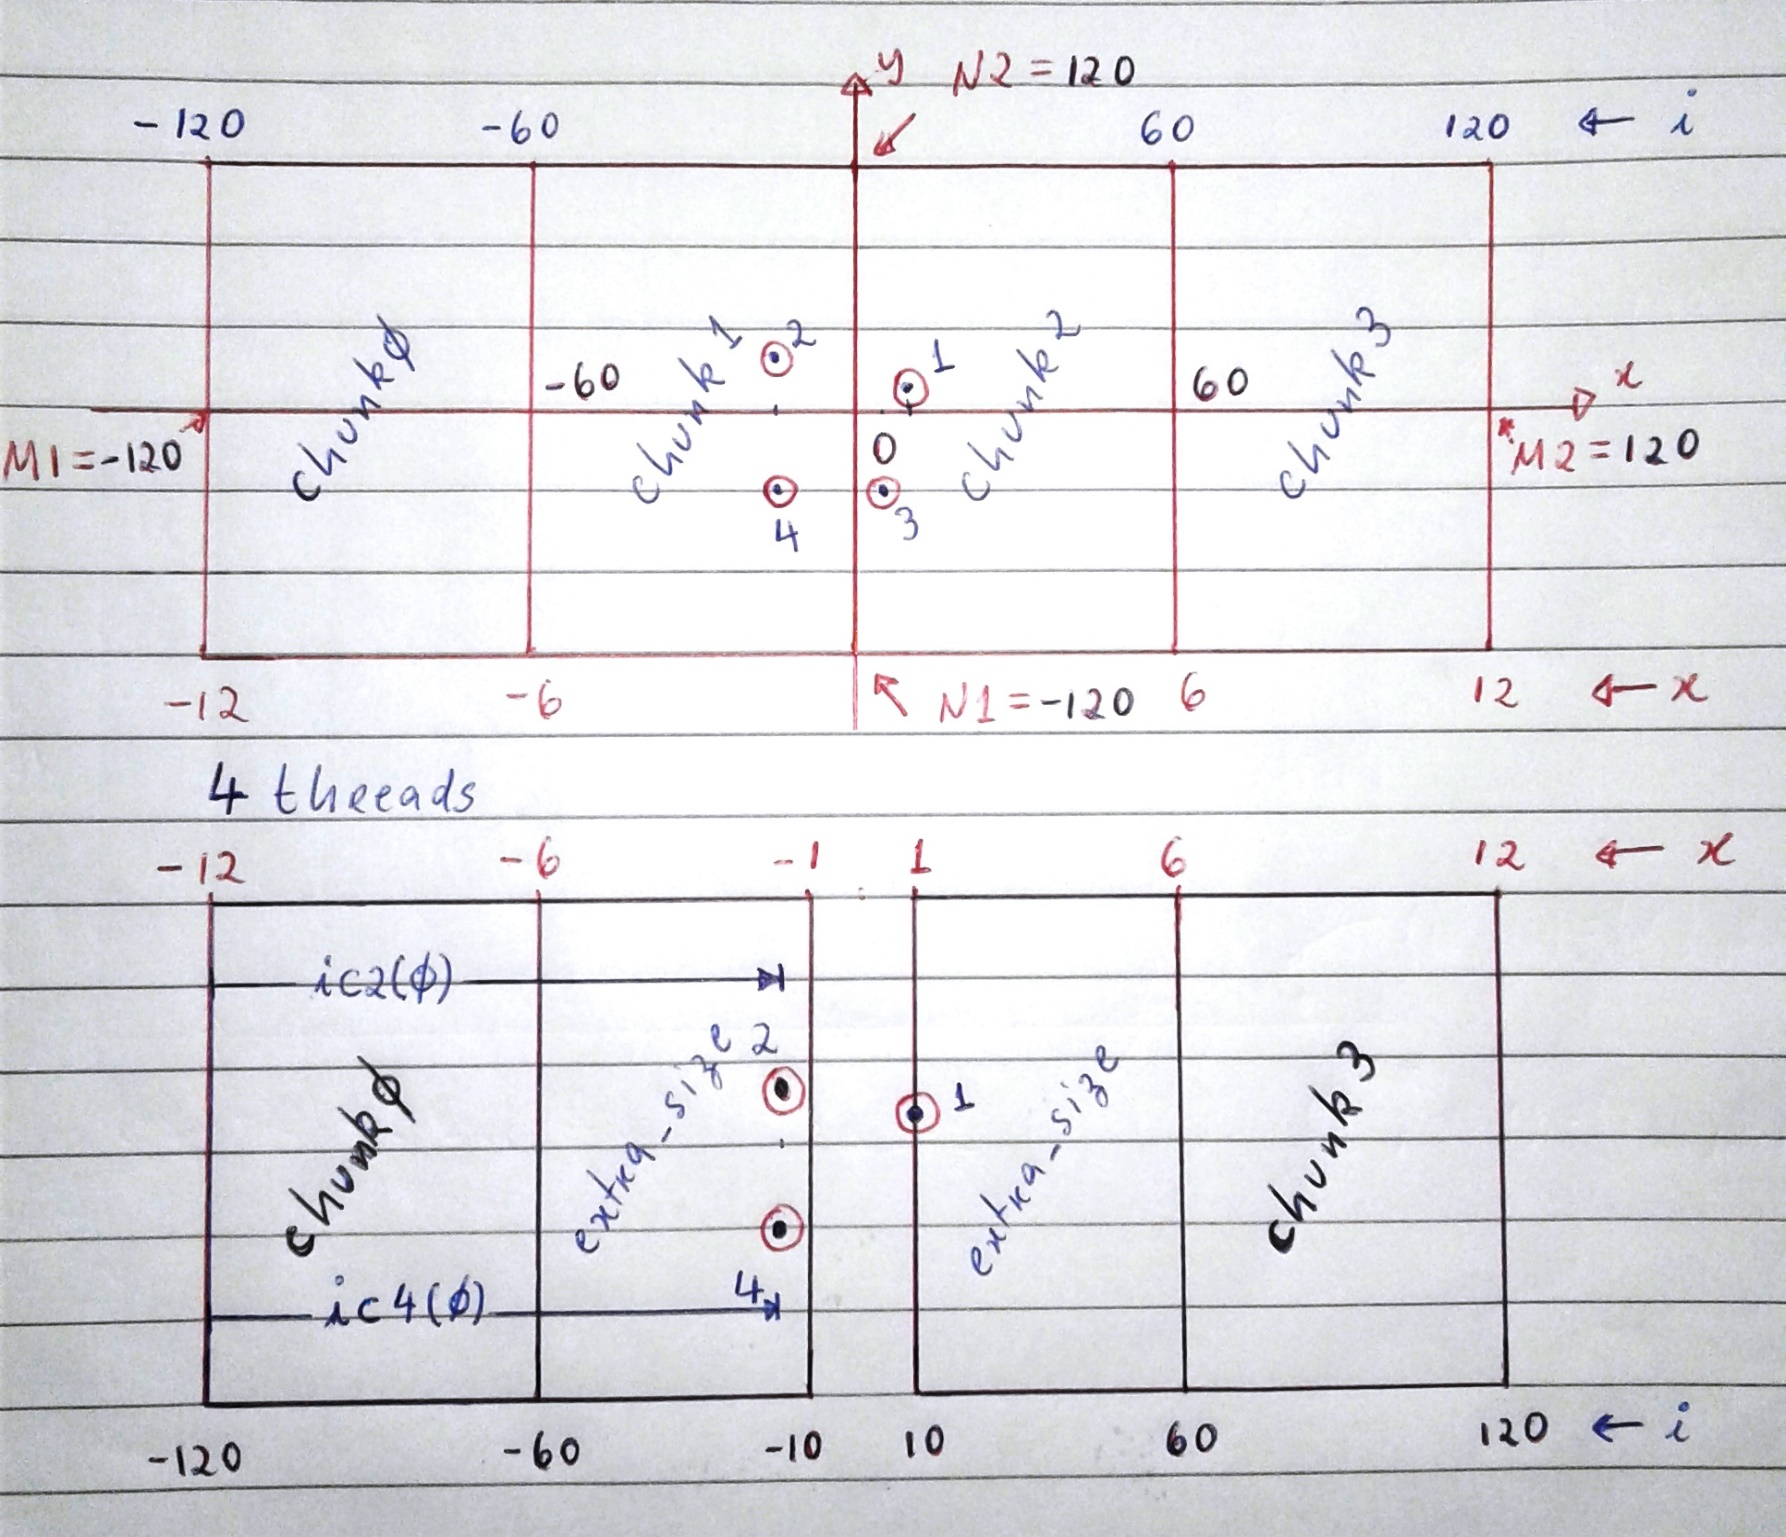 y N2 = 120
-120 -60 60 120 ← i
chunkφ chunk1 2 1 chunk2 chunk3
-60 60 x
M1=-120 0 M2=120
4 3
-12 -6 N1=-120 6 12 ← x
4 threads
-12 -6 -1 1 6 12 ← x
ic2(φ)
chunkφ extra_size 2 1 extra_size chunk3
ic4(φ) 4
-120 -60 -10 10 60 120 ← i